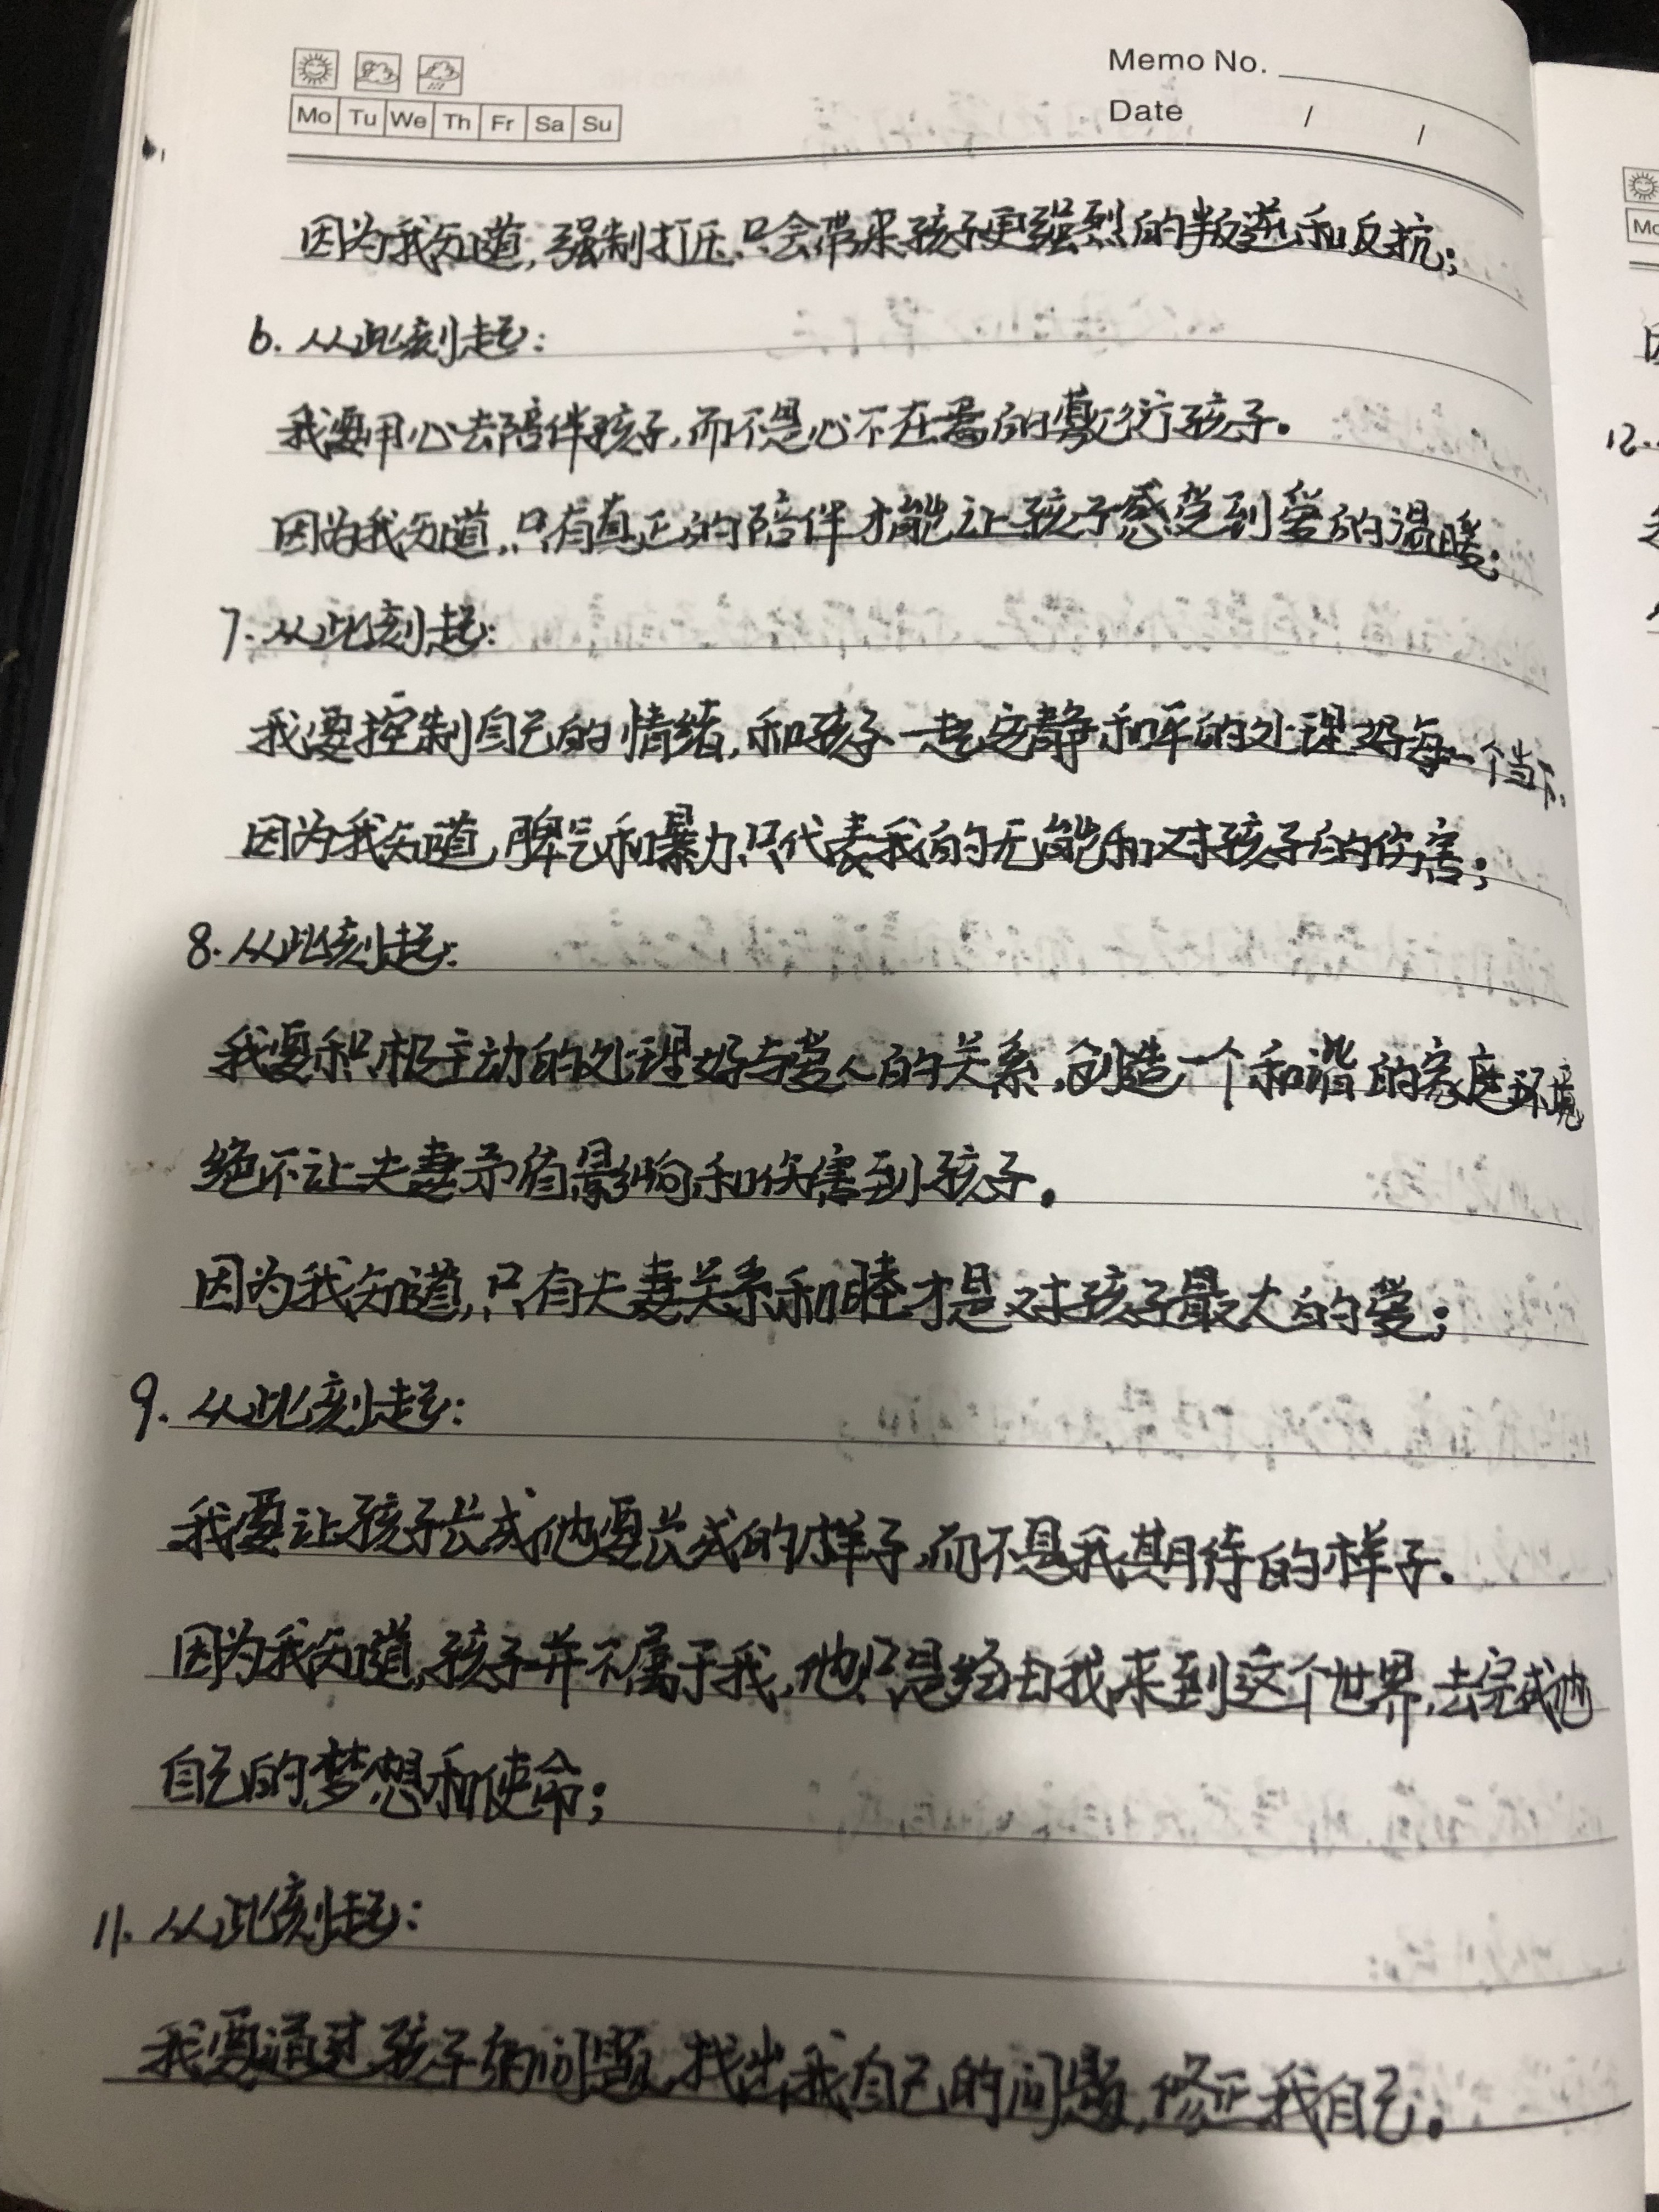 Memo No.
Mo Tu We Th Fr Sa Su
Date / /
因为我知道,强制打压只会带来孩子更强烈的叛逆和反抗;
6. 从此刻起:
我要用心去陪伴孩子,而不是心不在焉的敷衍孩子。
因为我知道,只有真正的陪伴才能让孩子感受到爱的温暖;
7. 从此刻起:
我要控制自己的情绪,和孩子一起安静和平的处理好每一个当下.
因为我知道,脾气和暴力只代表我的无能和对孩子的伤害;
8. 从此刻起:
我要积极主动的处理好与爱人的关系,创造一个和谐的家庭环境
绝不让夫妻矛盾影响和伤害到孩子。
因为我知道,只有夫妻关系和睦才是对孩子最大的爱;
9. 从此刻起:
我要让孩子长成他要长成的样子,而不是我期待的样子.
因为我知道,孩子并不属于我,他只是经由我来到这个世界,去完成他
自己的梦想和使命;
11. 从此刻起:
我要通过孩子的问题,找出我自己的问题,修正我自己。